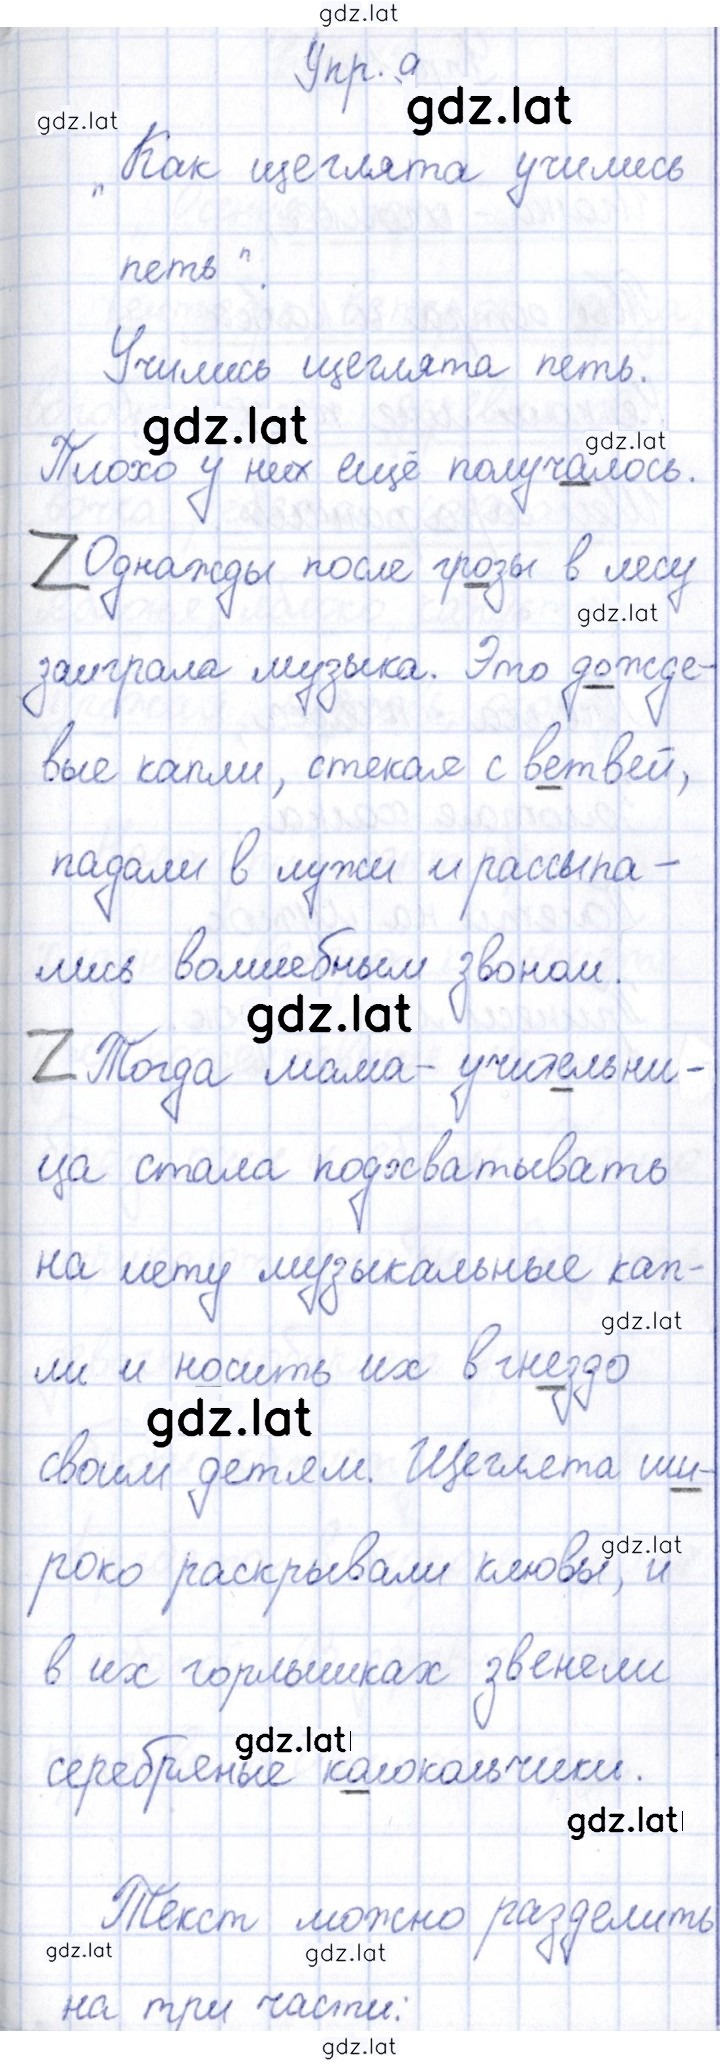 gdz.lat
Упр. 9
gdz.lat
gdz.lat
„Как щеглята учились
петь".
Учились щеглята петь.
gdz.lat
gdz.lat
Плохо у них ещё получалось.
Z Однажды после грозы в лесу
gdz.lat
заиграла музыка. Это дожде-
вые капли, стекая с ветвей,
падали в лужи и рассыпа-
лись волшебным звоном.
gdz.lat
Z Тогда мама - учительни-
ца стала подхватывать
на лету музыкальные кап-
gdz.lat
ли и носить их в гнездо
gdz.lat
своим детям. Щеглята ши-
gdz.lat
роко раскрывали клювы, и
в их горлышках звенели
gdz.lat
серебряные колокольчики.
gdz.lat
Текст можно разделить
gdz.lat
gdz.lat
на три части:
gdz.lat